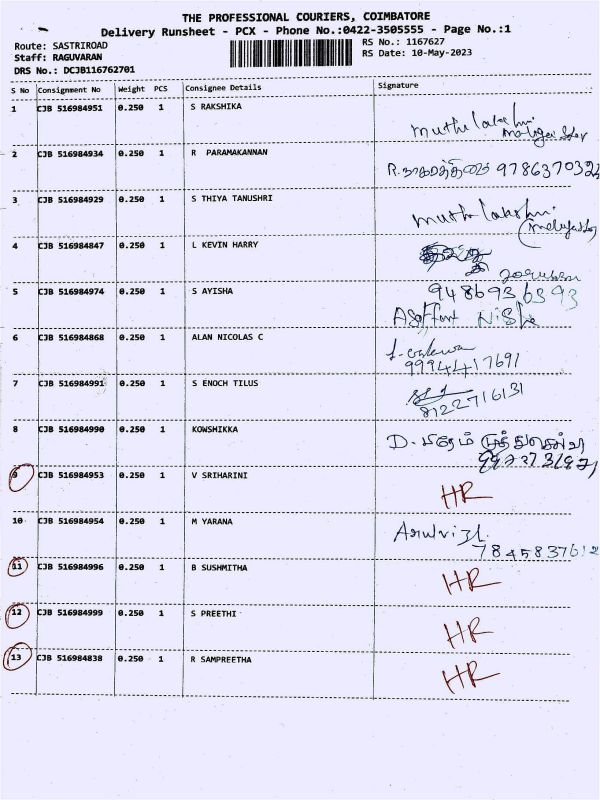 THE PROFESSIONAL COURIERS, COIMBATORE
Delivery Runsheet - PCX - Phone No.:0422-3505555 - Page No.:1
Route: SASTRIROAD
RS No.: 1167627
Staff: RAGUVARAN
RS Date: 10-May-2023
DRS No.: DCJB116762701
S No Consignment No Weight PCS Consignee Details Signature
1 CJB 516984951 0.250 1 S RAKSHIKA
2 CJB 516984934 0.250 1 R PARAMAKANNAN
3 CJB 516984929 0.250 1 S THIYA TANUSHRI
4 CJB 516984847 0.250 1 L KEVIN HARRY
5 CJB 516984974 0.250 1 S AYISHA
9486936393
6 CJB 516984868 0.250 1 ALAN NICOLAS C
9994417691
7 CJB 516984991 0.250 1 S ENOCH TILUS
8122716131
8 CJB 516984990 0.250 1 KOWSHIKKA
9 CJB 516984953 0.250 1 V SRIHARINI
HR
10 CJB 516984954 0.250 1 M YARANA
7845837612
11 CJB 516984996 0.250 1 B SUSHMITHA
HR
12 CJB 516984999 0.250 1 S PREETHI
HR
13 CJB 516984838 0.250 1 R SAMPREETHA
HR